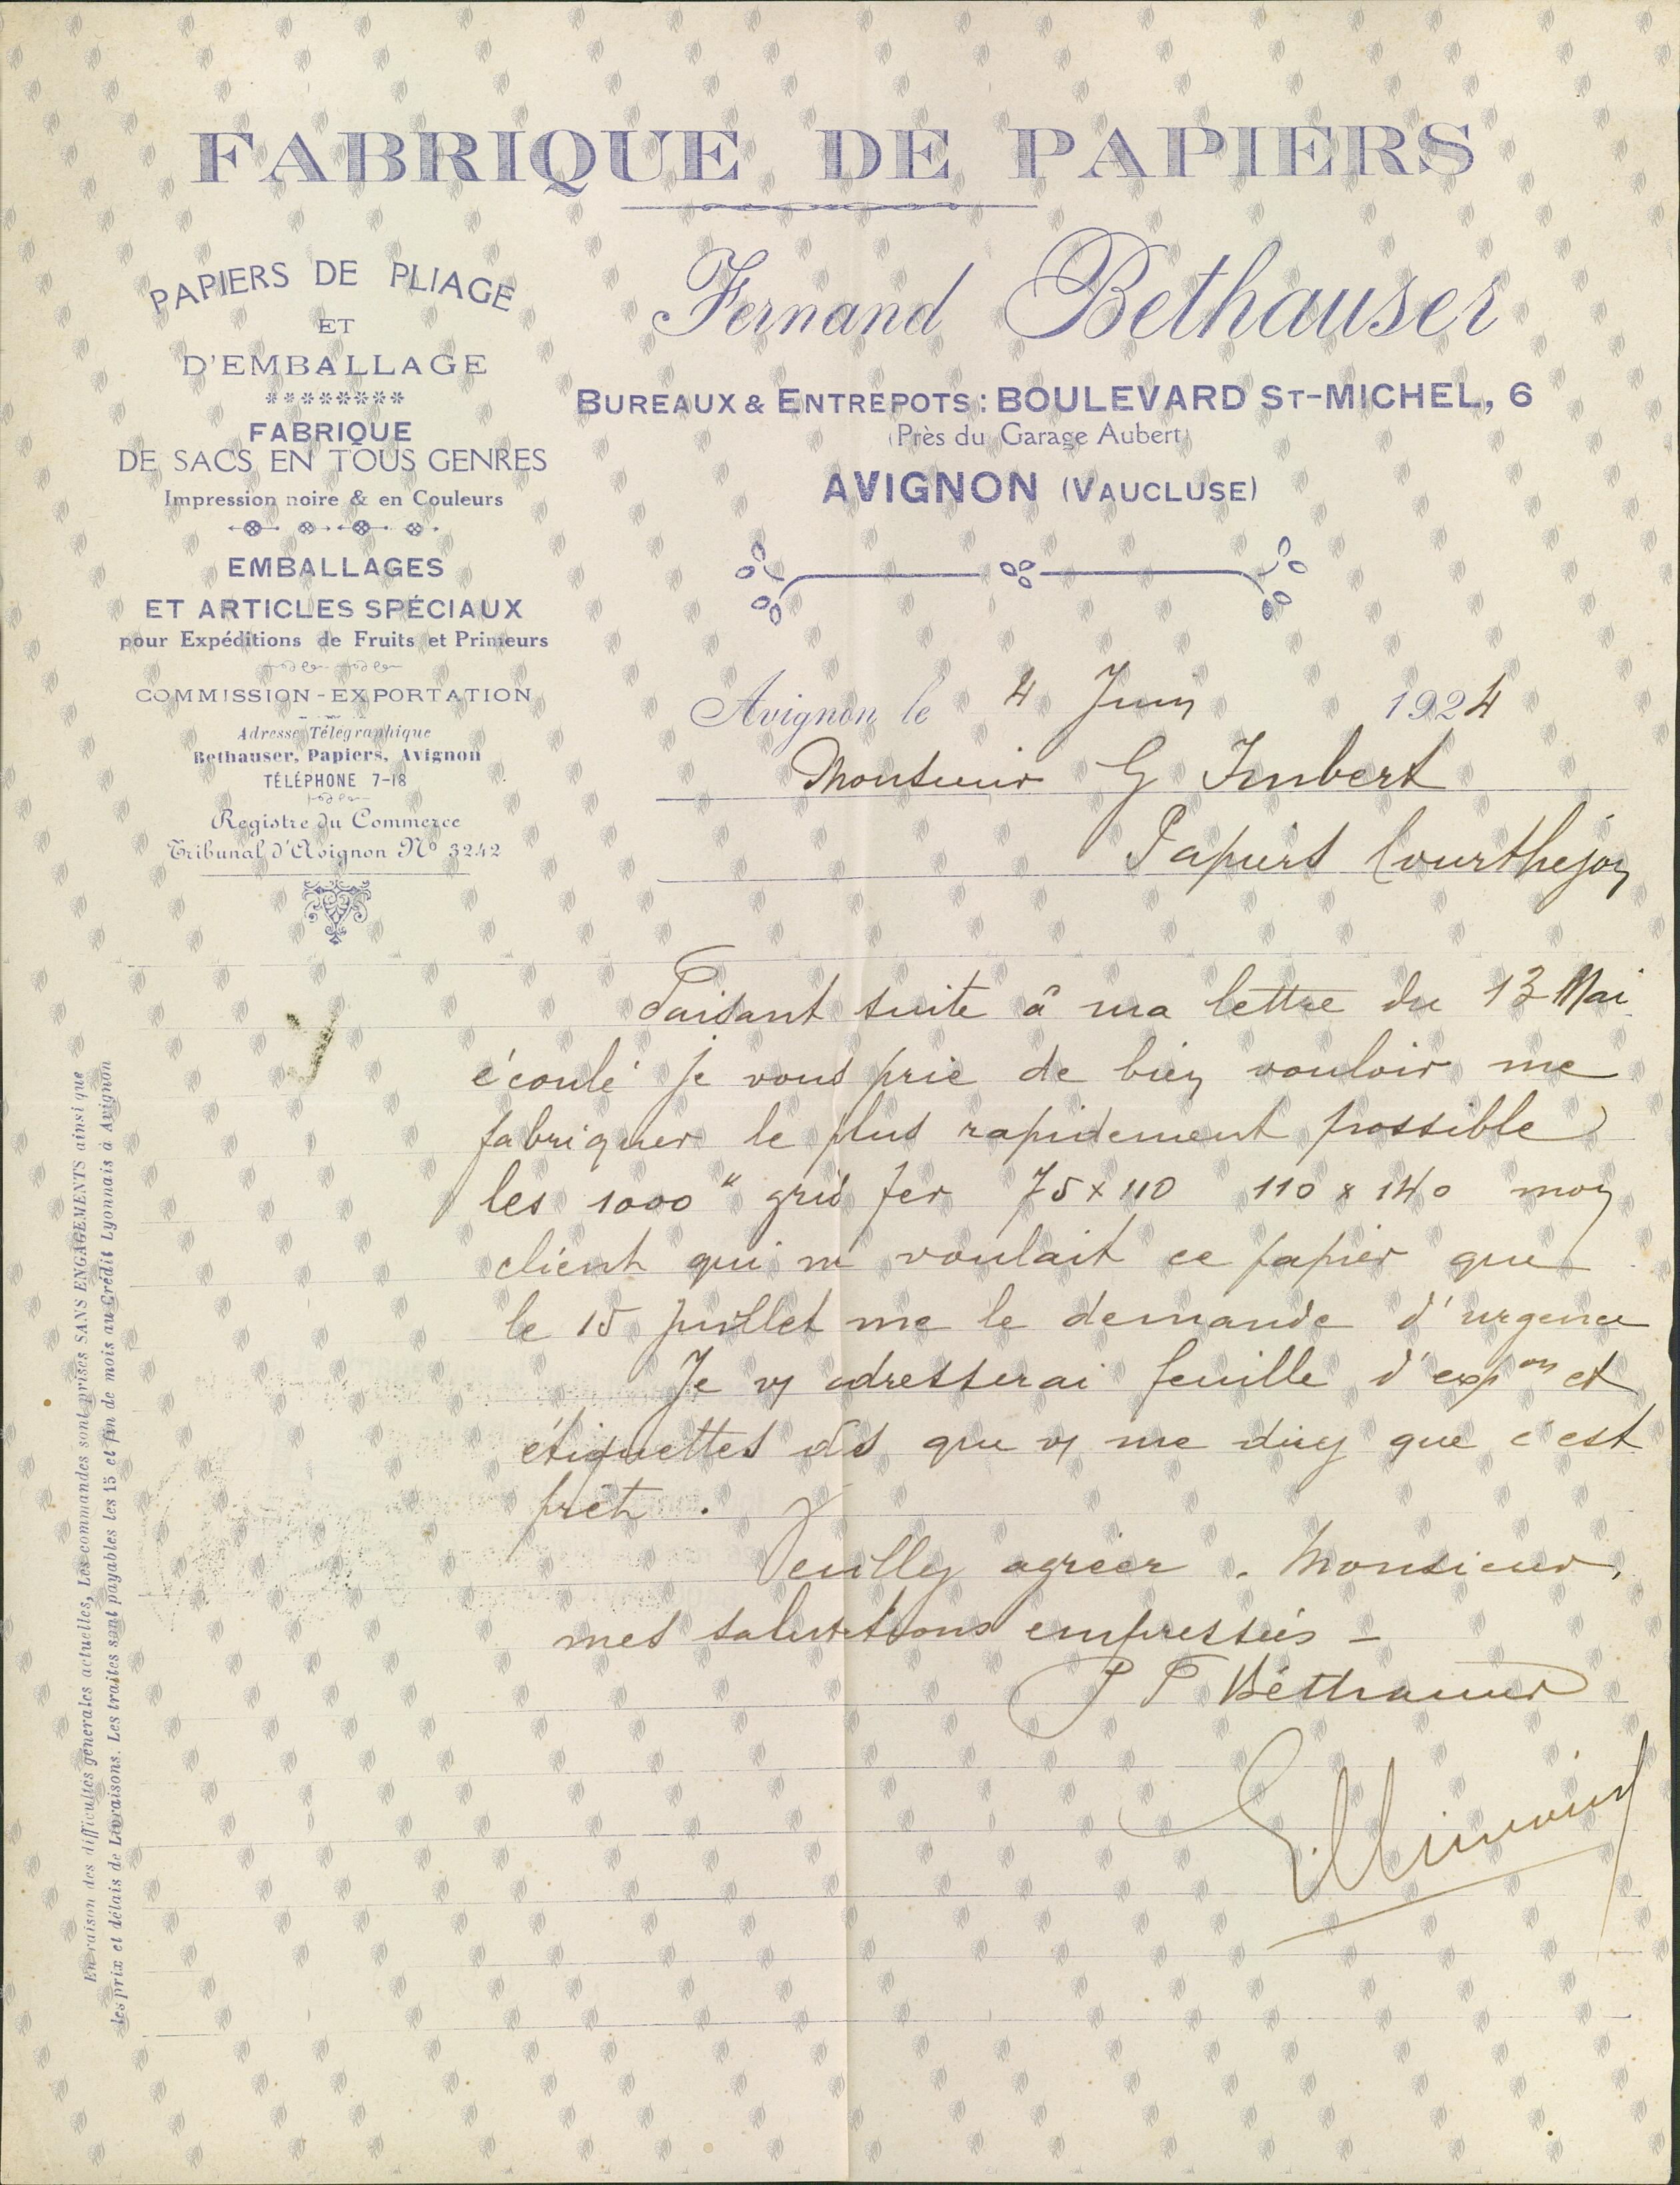 FABRIQUE DE PAPIERS
PAPIERS DE PLIAGE
ET
D'EMBALLAGE
FABRIQUE
DE SACS EN TOUS GENRES
Impression noire & en Couleurs
EMBALLAGES
ET ARTICLES SPÉCIAUX
pour Expéditions de Fruits et Primeurs
COMMISSION - EXPORTATION
Adresse Télégraphique
Bethauser, Papiers, Avignon
TÉLÉPHONE 7-18
Registre du Commerce
Tribunal d'Avignon No 3242
Fernand Bethauser
BUREAUX & ENTREPOTS : BOULEVARD ST-MICHEL, 6
(Près du Garage Aubert)
AVIGNON (VAUCLUSE)
Avignon le 4 Juin 1924
Monsieur G Imbert
Papiers Courthejon
Faisant suite à ma lettre du 13 Mai
écoulé je vous prie de bien vouloir me
fabriquer le plus rapidement possible
les 1000 " gris fer 75 x 110 110 x 140 mon
client qui ne voulait ce papier que
le 15 juillet me le demande d'urgence
Je vs adresserai feuille d'expon et
étiquettes dès que vs me direz que c'est
prêt.
Veuillez agréer. Monsieur,
mes salutations empressées -
P F Béthauser
En raison des difficultés générales actuelles, Les commandes sont prises SANS ENGAGEMENTS ainsi que
les prix et délais de Livraisons. Les traites sont payables les 15 et fin de mois au Crédit Lyonnais à Avignon